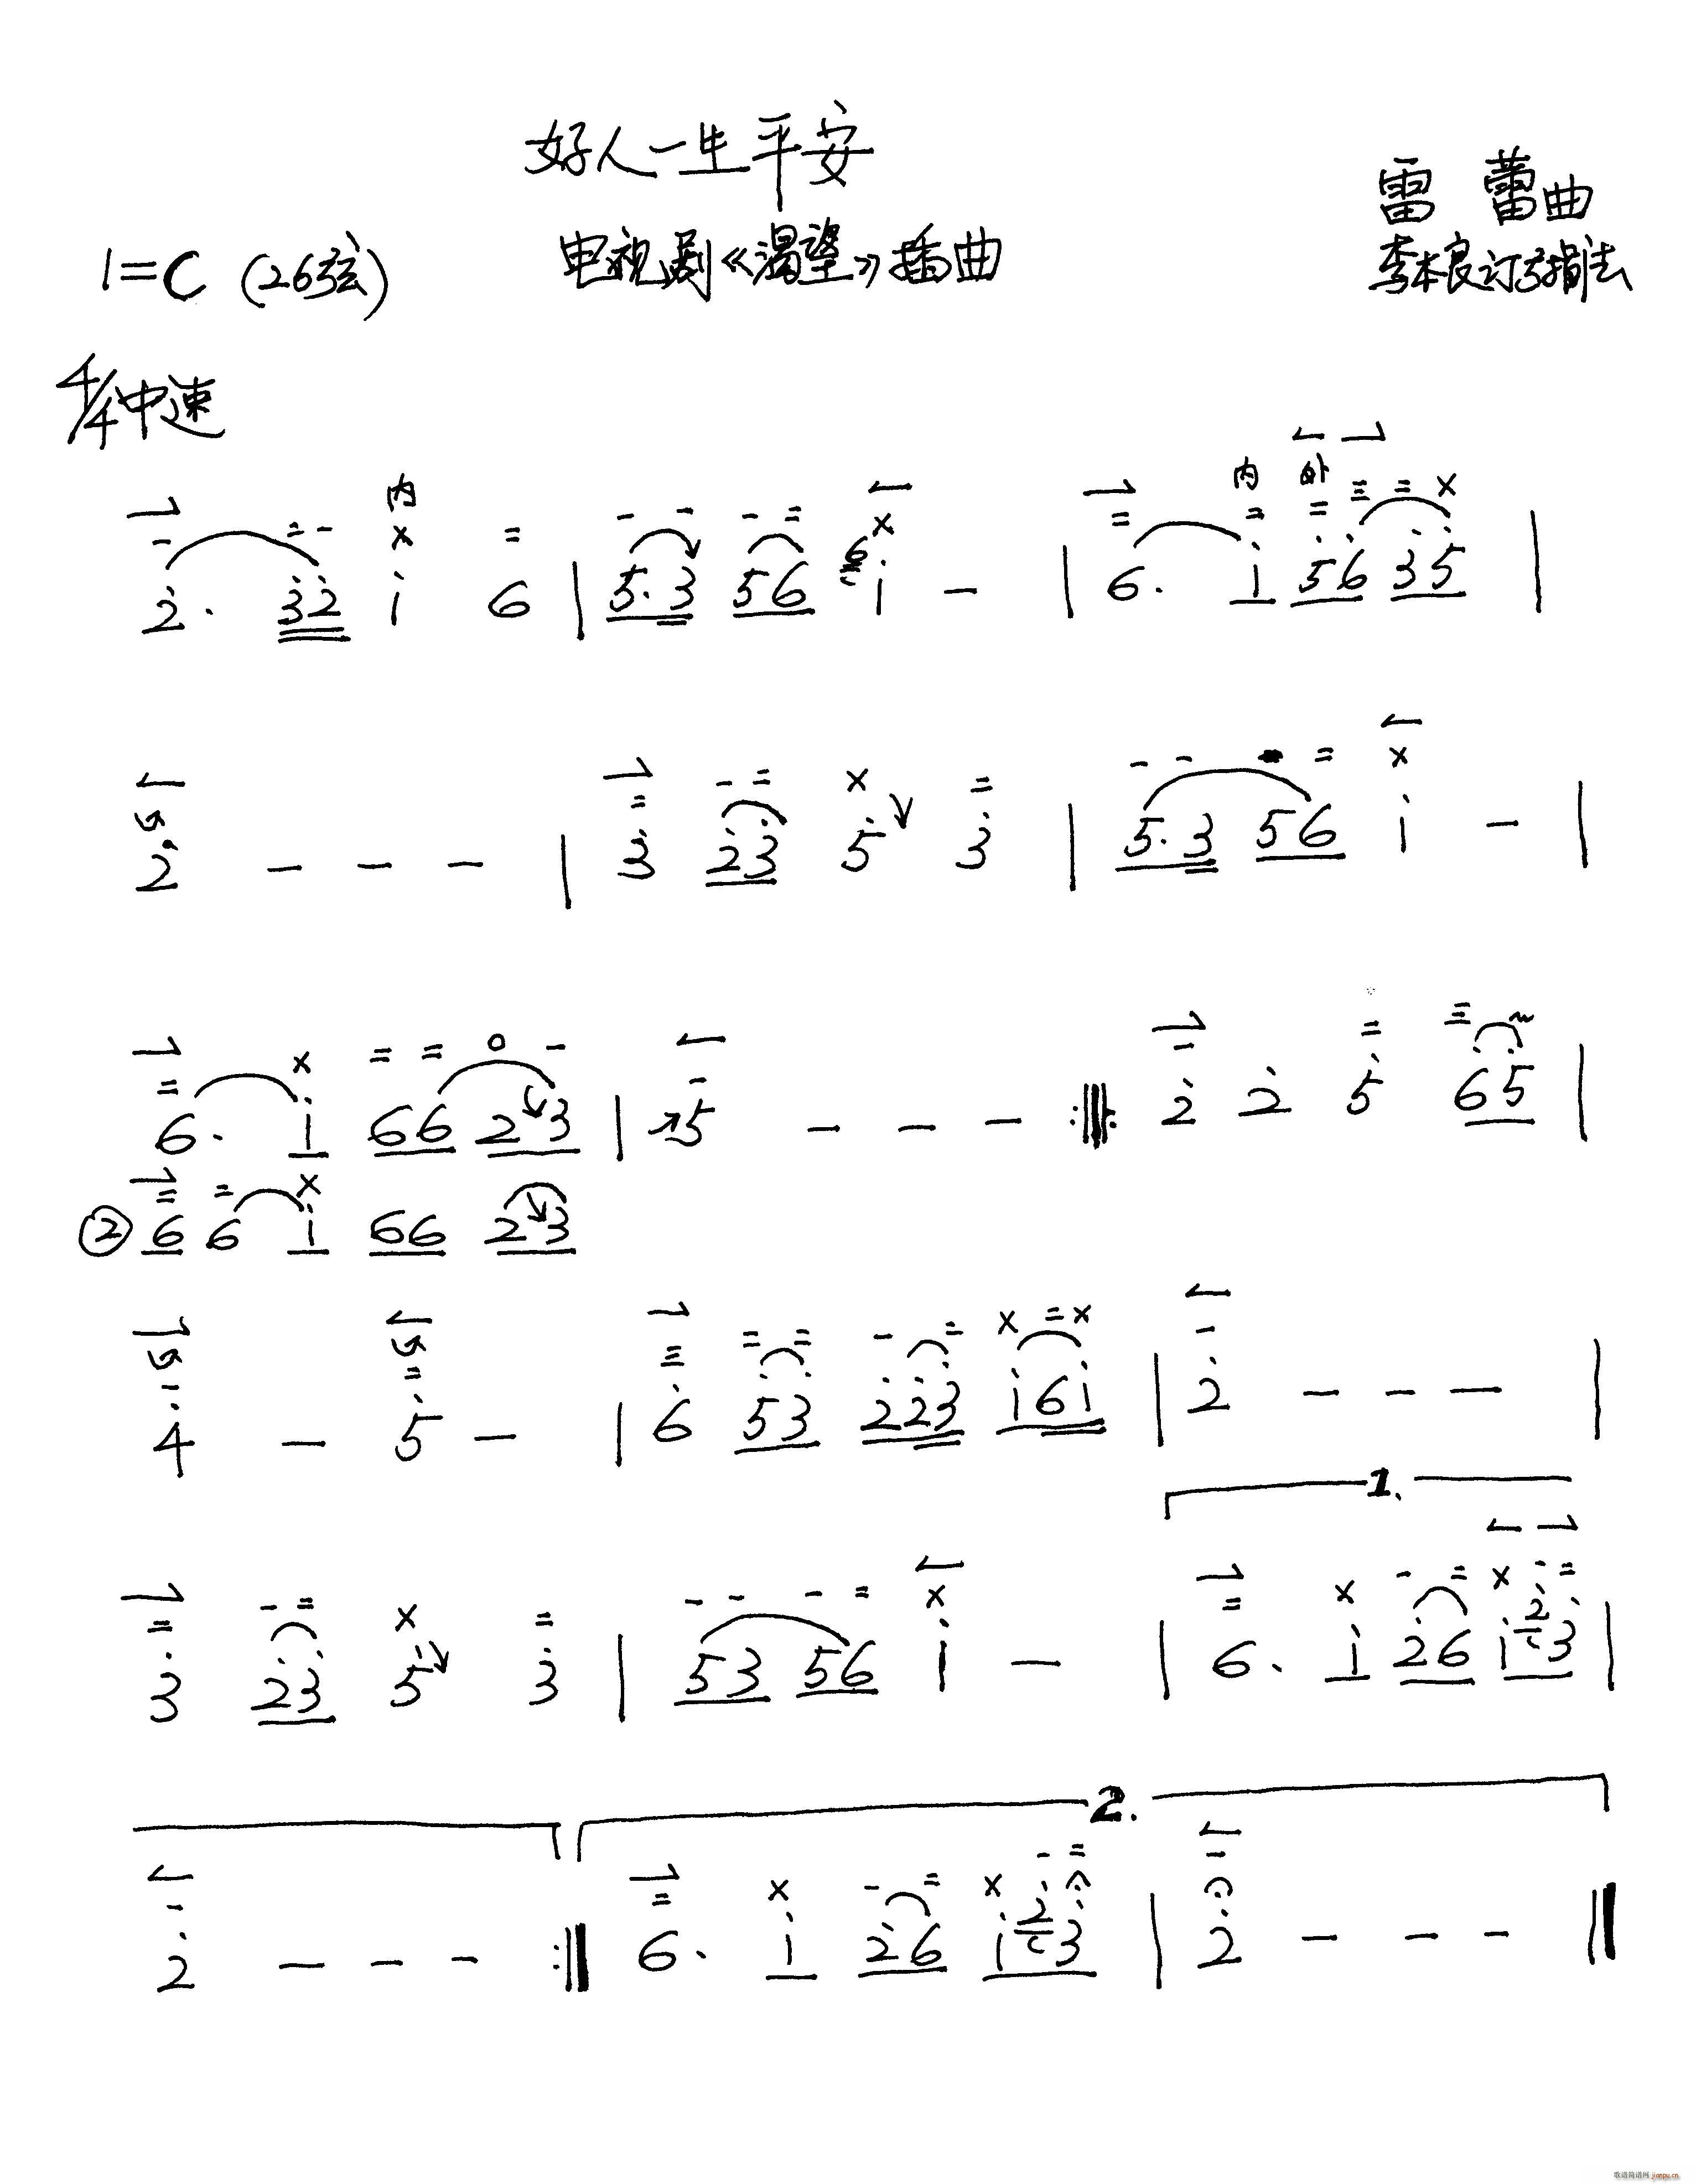 好人一生平安
雷 蕾曲
电视剧《渴望》插曲
1=C (26弦)
李本良订弓指法
4/4中速
内
内 外
2̇. 3̇2̇ i 6 | 5.3 56 6 i - | 6. i 5̇6̇ 3̇5̇ |
2̇ - - - | 3̇ 2̇3̇ 5̇ 3̇ | 5.3 56 i - |
6. i 66 23 | 5 - - - :||: 2̇ 2̇ 5̇ 6̇5̇ |
② 6 6 i 66 23
4̇ - 5̇ - | 6̇ 5̇3̇ 2̇2̇3̇ i6i | 2̇ - - - |
1.
3̇ 2̇3̇ 5̇ 3̇ | 53 56 i - | 6. i 2̇6 i 2̇ 3̇ |
2.
2̇ - - - :|| 6. i 2̇6 i 2̇ 3̇ | 2̇ - - - ||
歌谱简谱网 jianpu.cn